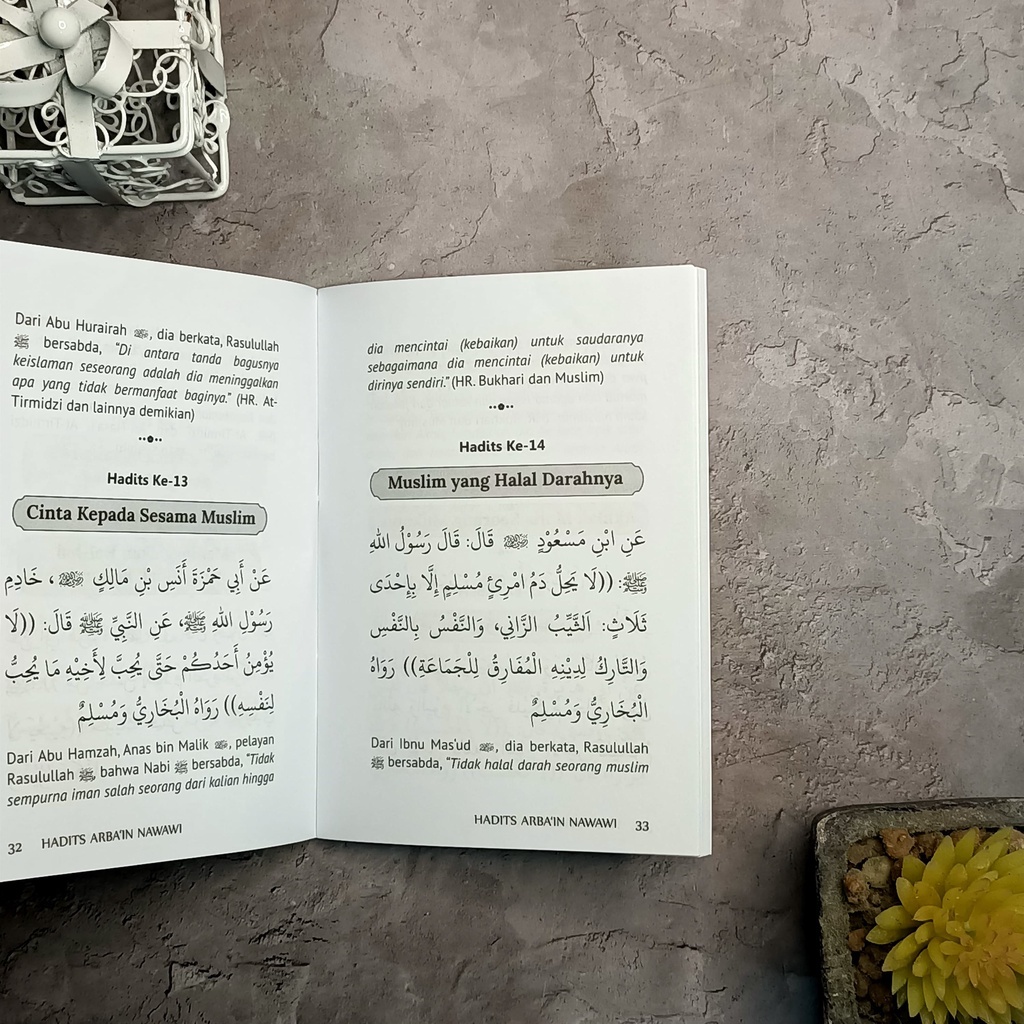 Dari Abu Hurairah ؓ, dia berkata, Rasulullah
ﷺ bersabda, "Di antara tanda bagusnya
keislaman seseorang adalah dia meninggalkan
apa yang tidak bermanfaat baginya." (HR. At-
Tirmidzi dan lainnya demikian)
Hadits Ke-13
Cinta Kepada Sesama Muslim
عَنْ أَبِي حَمْزَةَ أَنَسِ بْنِ مَالِكٍ ؓ، خَادِمِ
رَسُوْلِ اللهِ ﷺ، عَنِ النَّبِيِّ ﷺ قَالَ: ((لَا
يُؤْمِنُ أَحَدُكُمْ حَتَّى يُحِبَّ لِأَخِيْهِ مَا يُحِبُّ
لِنَفْسِهِ)) رَوَاهُ الْبُخَارِيُّ وَمُسْلِمٌ
Dari Abu Hamzah, Anas bin Malik ؓ, pelayan
Rasulullah ﷺ, bahwa Nabi ﷺ bersabda, "Tidak
sempurna iman salah seorang dari kalian hingga
32 HADITS ARBA'IN NAWAWI
dia mencintai (kebaikan) untuk saudaranya
sebagaimana dia mencintai (kebaikan) untuk
dirinya sendiri." (HR. Bukhari dan Muslim)
Hadits Ke-14
Muslim yang Halal Darahnya
عَنِ ابْنِ مَسْعُوْدٍ ؓ قَالَ: قَالَ رَسُوْلُ اللهِ
ﷺ: ((لَا يَحِلُّ دَمُ امْرِئٍ مُسْلِمٍ إِلَّا بِإِحْدَى
ثَلَاثٍ: اَلثَّيِّبُ الزَّانِي، وَالنَّفْسُ بِالنَّفْسِ
وَالتَّارِكُ لِدِيْنِهِ الْمُفَارِقُ لِلْجَمَاعَةِ)) رَوَاهُ
الْبُخَارِيُّ وَمُسْلِمٌ
Dari Ibnu Mas'ud ؓ, dia berkata, Rasulullah
ﷺ bersabda, "Tidak halal darah seorang muslim
HADITS ARBA'IN NAWAWI 33